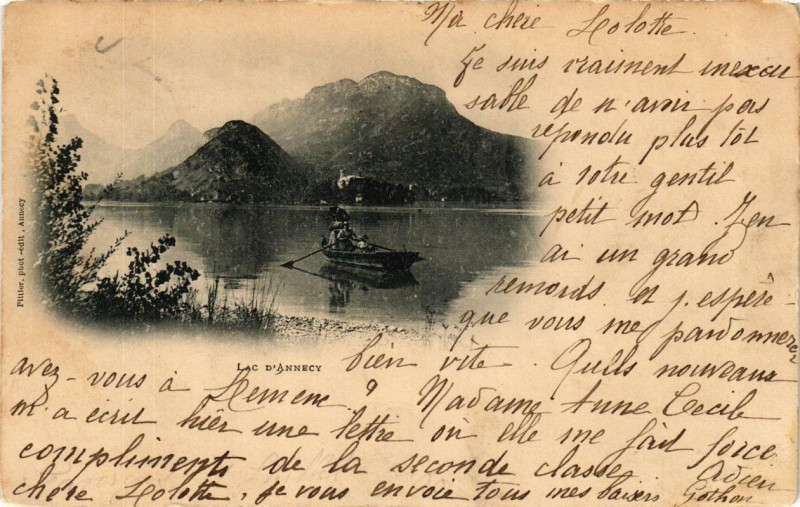 Ma chère Lolotte.
Je suis vraiment inexcu
sable de n'avoir pas
répondu plus tôt
à votre gentil
petit mot. J'en
ai un grand
remords et j'espère
que vous me pardonnerez
bien vite. Quels nouveaux
avez-vous à ?
Madame Anne Cécile
m'a écrit hier une lettre où elle me fait force
compliments de la seconde classe. Adieu
chère Lolotte, je vous envoie tous mes baisers Gothon
LAC D'ANNECY
Pittier, phot-édit, Annecy